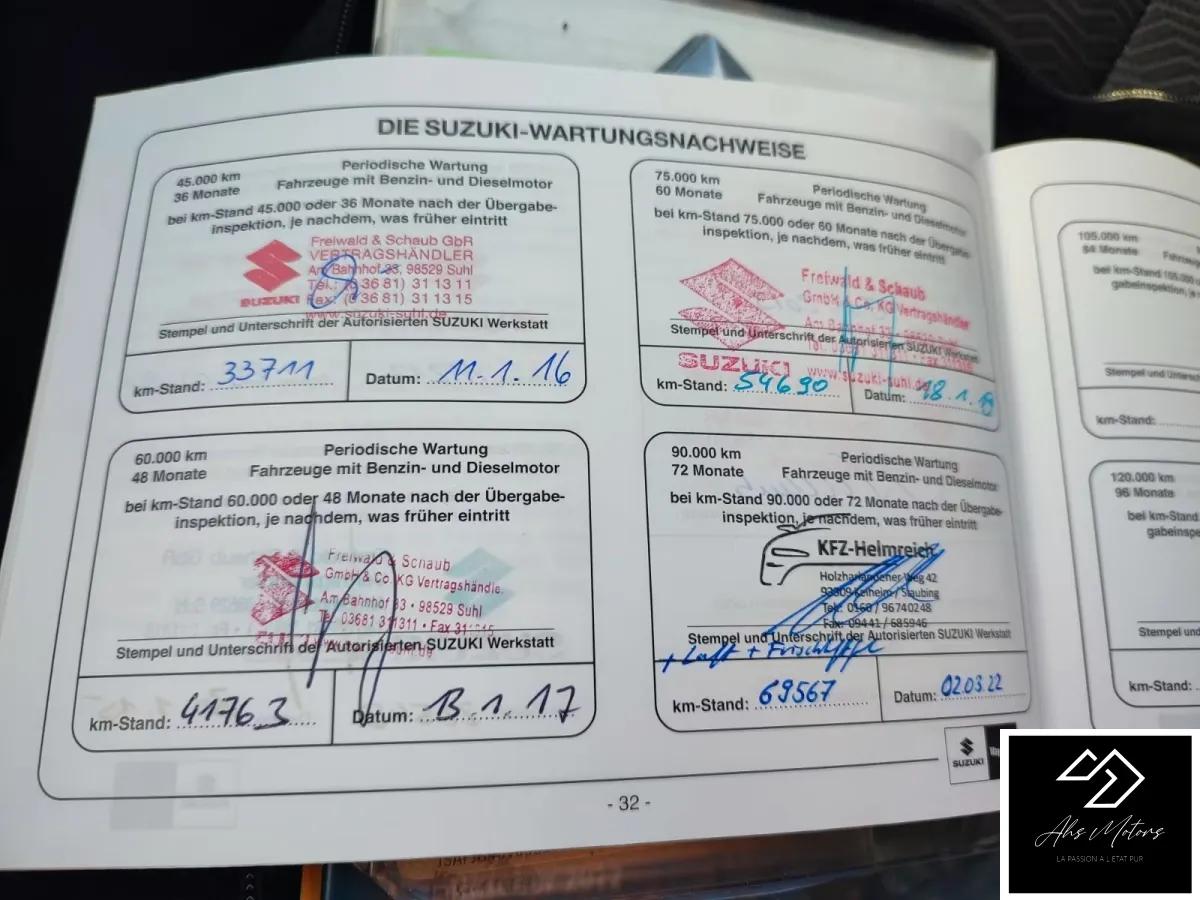 DIE SUZUKI-WARTUNGSNACHWEISE
45.000 km
36 Monate
Periodische Wartung
Fahrzeuge mit Benzin- und Dieselmotor
bei km-Stand 45.000 oder 36 Monate nach der Übergabe-
inspektion, je nachdem, was früher eintritt
SUZUKI
Freiwald & Schaub GbR
VERTRAGSHÄNDLER
Am Bahnhof 33, 98529 Suhl
Tel.: (0 36 81) 31 13 11
Fax: (0 36 81) 31 13 15
www.suzuki-suhl.de
Stempel und Unterschrift der Autorisierten SUZUKI Werkstatt
km-Stand: 33711
Datum: 11.1.16
60.000 km
48 Monate
Periodische Wartung
Fahrzeuge mit Benzin- und Dieselmotor
bei km-Stand 60.000 oder 48 Monate nach der Übergabe-
inspektion, je nachdem, was früher eintritt
Freiwald & Schaub
GmbH & Co. KG Vertragshändle
Am Bahnhof 33 • 98529 Suhl
Tel. 03681 311311 • Fax
Stempel und Unterschrift der Autorisierten SUZUKI Werkstatt
km-Stand: 41763
Datum: 13.1.17
75.000 km
60 Monate
Periodische Wartung
Fahrzeuge mit Benzin- und Dieselmotor
bei km-Stand 75.000 oder 60 Monate nach der Übergabe-
inspektion, je nachdem, was früher eintritt
Freiwald & Schaub
GmbH & Co. KG Vertragshändler
Am Bahnhof 33 • 98529 Suhl
Stempel und Unterschrift der Autorisierten SUZUKI Werkstatt
SUZUKI
www.suzuki-suhl.de
km-Stand: 54690
Datum: 18.1.
90.000 km
72 Monate
Periodische Wartung
Fahrzeuge mit Benzin- und Dieselmotor
bei km-Stand 90.000 oder 72 Monate nach der Übergabe-
inspektion, je nachdem, was früher eintritt
KFZ-Helmreich
Weg 42
93309 Kelheim / Staubing
Tel.: 0160 / 96740248
Fax: 09441 / 685946
Stempel und Unterschrift der Autorisierten SUZUKI Werkstatt
+ Luft +
km-Stand: 69567
Datum: 02.03.22
SUZUKI
- 32 -
105.000 km
84 Monate
bei km-Stand 105.000
gabeinspektion, je
Stempel und
km-Stand:
120.000 km
96 Monate
bei km-Stand
gabeinspe
Stempel und
km-Stand:
Ahs Motors
LA PASSION A L ETAT PUR